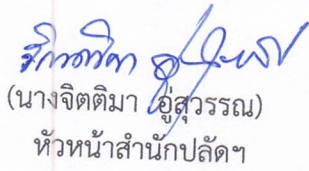 (นางจิตติมา อู่สุวรรณ)
หัวหน้าสำนักปลัดฯ